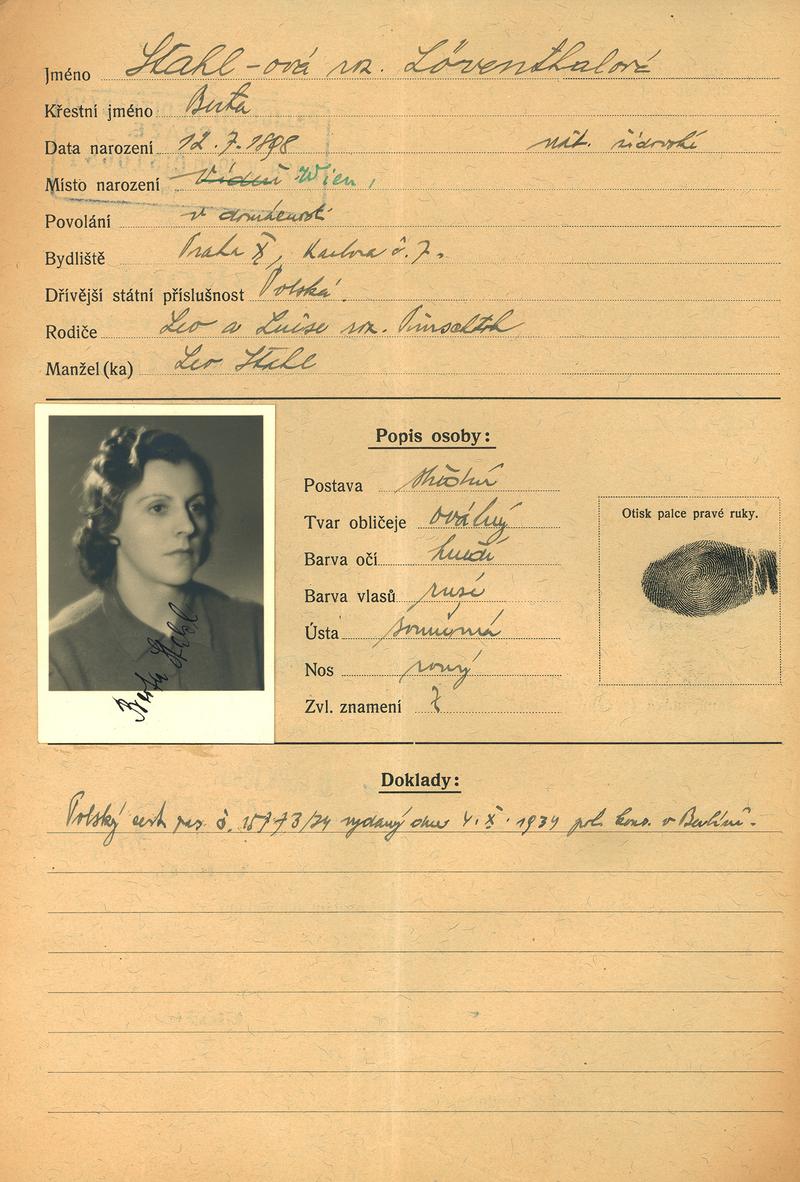 Jméno Stahl-ová roz. Löventhalová
Křestní jméno Berta
Data narození 12.7.1898 nát. židovské
Místo narození Vídeň Wien,
Povolání v domácnosti
Bydliště Praha X, Karlova č. 7.
Dřívější státní příslušnost Polská.
Rodiče Leo a Luise roz.
Manžel (ka) Leo Stahl
Popis osoby:
Postava střední
Tvar obličeje oválný
Barva očí hnědé
Barva vlasů rusé
Ústa souměrná
Nos rovný
Zvl. znamení
Otisk palce pravé ruky.
Berta Stahl
Doklady:
Polský cest. pas č. vydaný dne 4.X.1934 pol. konz. v Berlíně.